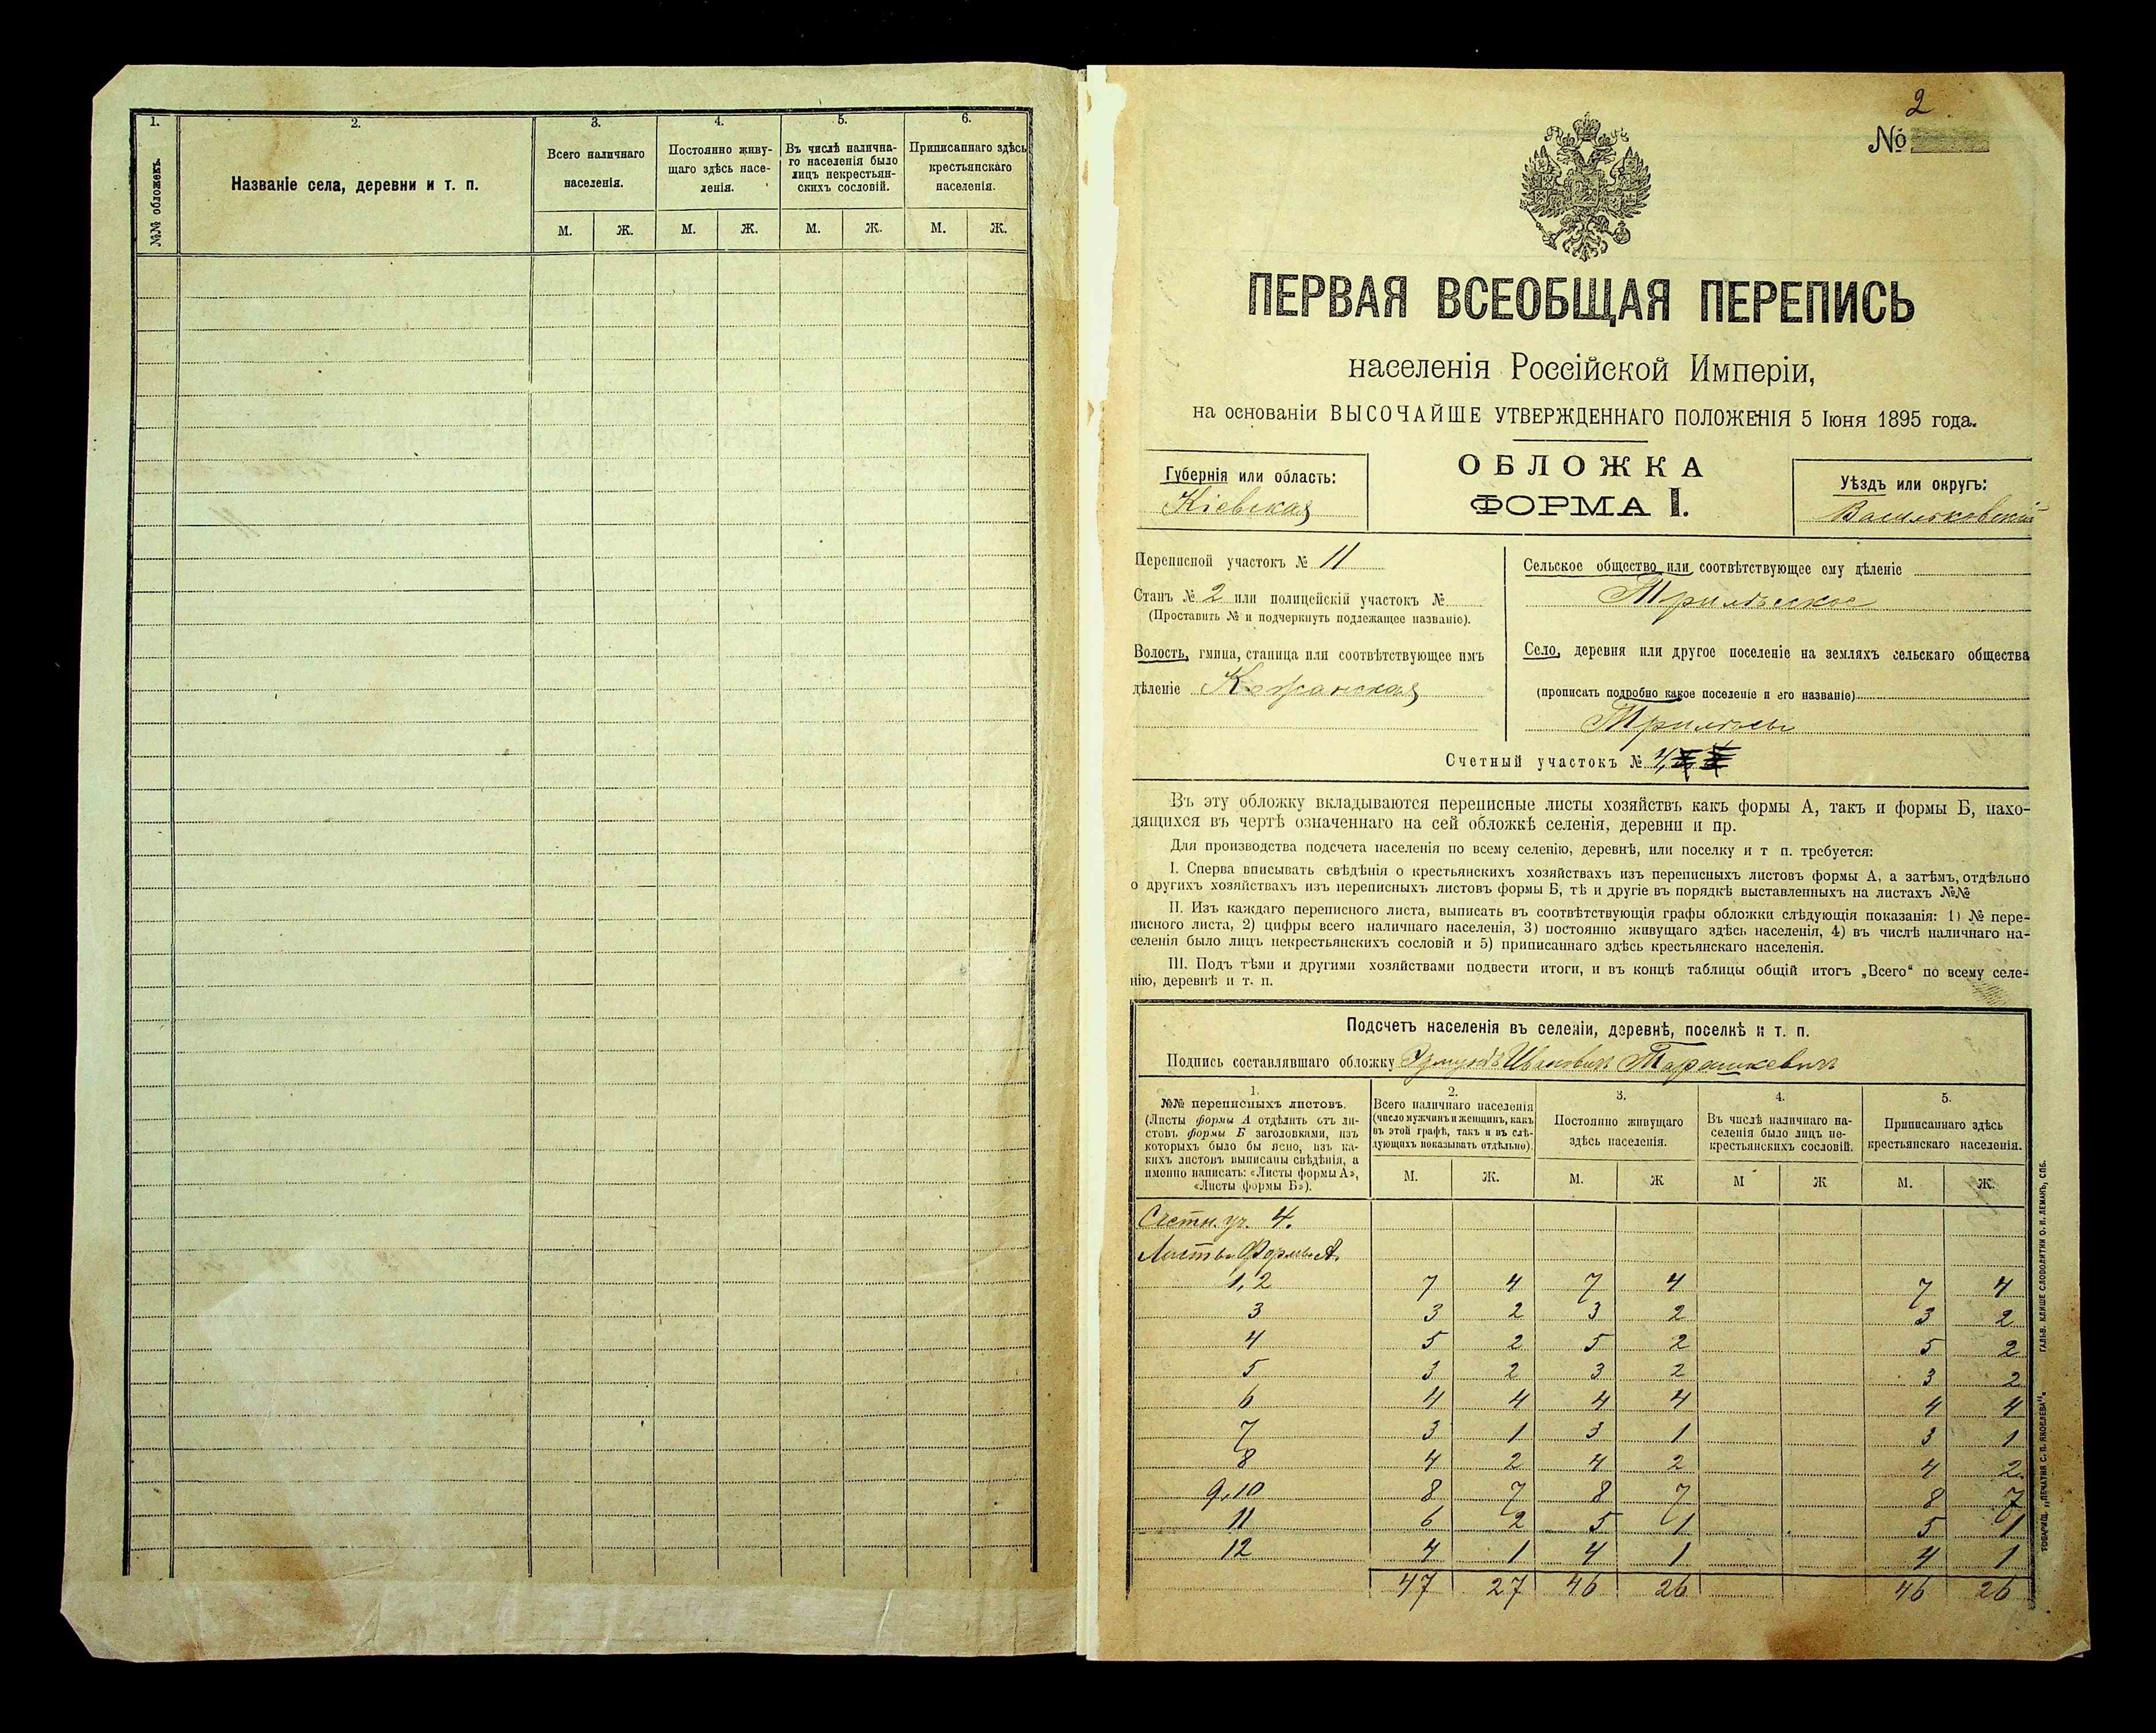 1.
2.
3.
4.
5.
6.
№№ обложекъ.
Названіе села, деревни и т. п.
Всего наличнаго
населенія.
Постоянно живу-
щаго здѣсь насе-
ленія.
Въ числѣ налична-
го населенія было
лицъ некрестьян-
скихъ сословій.
Приписаннаго здѣсь
крестьянскаго
населенія.
М. Ж. М. Ж. М. Ж. М. Ж.
2
№
ПЕРВАЯ ВСЕОБЩАЯ ПЕРЕПИСЬ
населенія Россійской Имперіи,
на основаніи ВЫСОЧАЙШЕ УТВЕРЖДЕННАГО ПОЛОЖЕНІЯ 5 Іюня 1895 года.
Губернія или область:
Кіевская
ОБЛОЖКА
ФОРМА I.
Уѣздъ или округъ:
Васильковскій
Переписной участокъ № 11
Станъ № 2 или полицейскій участокъ №
(Проставить № и подчеркнуть подлежащее названіе).
Волость, гмина, станица или соотвѣтствующее имъ
дѣленіе Кожанская
Сельское общество или соотвѣтствующее ему дѣленіе
Трилѣсское
Село, деревня или другое поселеніе на земляхъ сельскаго общества
(прописать подробно какое поселеніе и его названіе)
Трилѣсы
Счетный участокъ № 4,
Въ эту обложку вкладываются переписные листы хозяйствъ какъ формы А, такъ и формы Б, нахо-
дящихся въ чертѣ означеннаго на сей обложкѣ селенія, деревни и пр.
Для производства подсчета населенія по всему селенію, деревнѣ, или поселку и т п. требуется:
I. Сперва вписывать свѣдѣнія о крестьянскихъ хозяйствахъ изъ переписныхъ листовъ формы А, а затѣмъ, отдѣльно
о другихъ хозяйствахъ изъ переписныхъ листовъ формы Б, тѣ и другіе въ порядкѣ выставленныхъ на листахъ №№
II. Изъ каждаго переписного листа, выписать въ соотвѣтствующія графы обложки слѣдующія показанія: 1) № пере-
писного листа, 2) цифры всего наличнаго населенія, 3) постоянно живущаго здѣсь населенія, 4) въ числѣ наличнаго на-
селенія было лицъ некрестьянскихъ сословій и 5) приписаннаго здѣсь крестьянскаго населенія.
III. Подъ тѣми и другими хозяйствами подвести итоги, и въ концѣ таблицы общій итогъ „Всего“ по всему селе-
нію, деревнѣ и т. п.
Подсчетъ населенія въ селеніи, деревнѣ, поселкѣ и т. п.
Подпись составлявшаго обложку Ивановичъ Тарашкевичъ
1.
№№ переписныхъ листовъ.
(Листы формы А отдѣлить отъ ли-
стовъ формы Б заголовками, изъ
которыхъ было бы ясно, изъ ка-
кихъ листовъ выписаны свѣдѣнія, а
именно написать: «Листы формы А»,
«Листы формы Б»).
2.
Всего наличнаго населенія
(число мужчинъ и женщинъ, какъ
въ этой графѣ, такъ и въ слѣ-
дующихъ показывать отдѣльно).
3.
Постоянно живущаго
здѣсь населенія.
4.
Въ числѣ наличнаго на-
селенія было лицъ не-
крестьянскихъ сословій.
5.
Приписаннаго здѣсь
крестьянскаго населенія.
М. Ж. М. Ж М Ж М. Ж.
Счетн. уч. 4.
Листы Формы А.
1,2 7 4 7 4 7 4
3 3 2 3 2 3 2
4 5 2 5 2 5 2
5 3 2 3 2 3 2
6 4 4 4 4 4 4
7 3 1 3 1 3 1
8 4 2 4 2 4 2.
9,10 8 7 8 7 8 7
11 6 2 5 1 5 1
12 4 1 4 1 4 1
47 27 46 26 46 26
ТОВАРИЩ. „ПЕЧАТНЯ С. П. ЯКОВЛЕВА“. ГАЛЬВ. КЛИШЕ СЛОВОЛИТНИ О. И. ЛЕМАНЪ, СПБ.